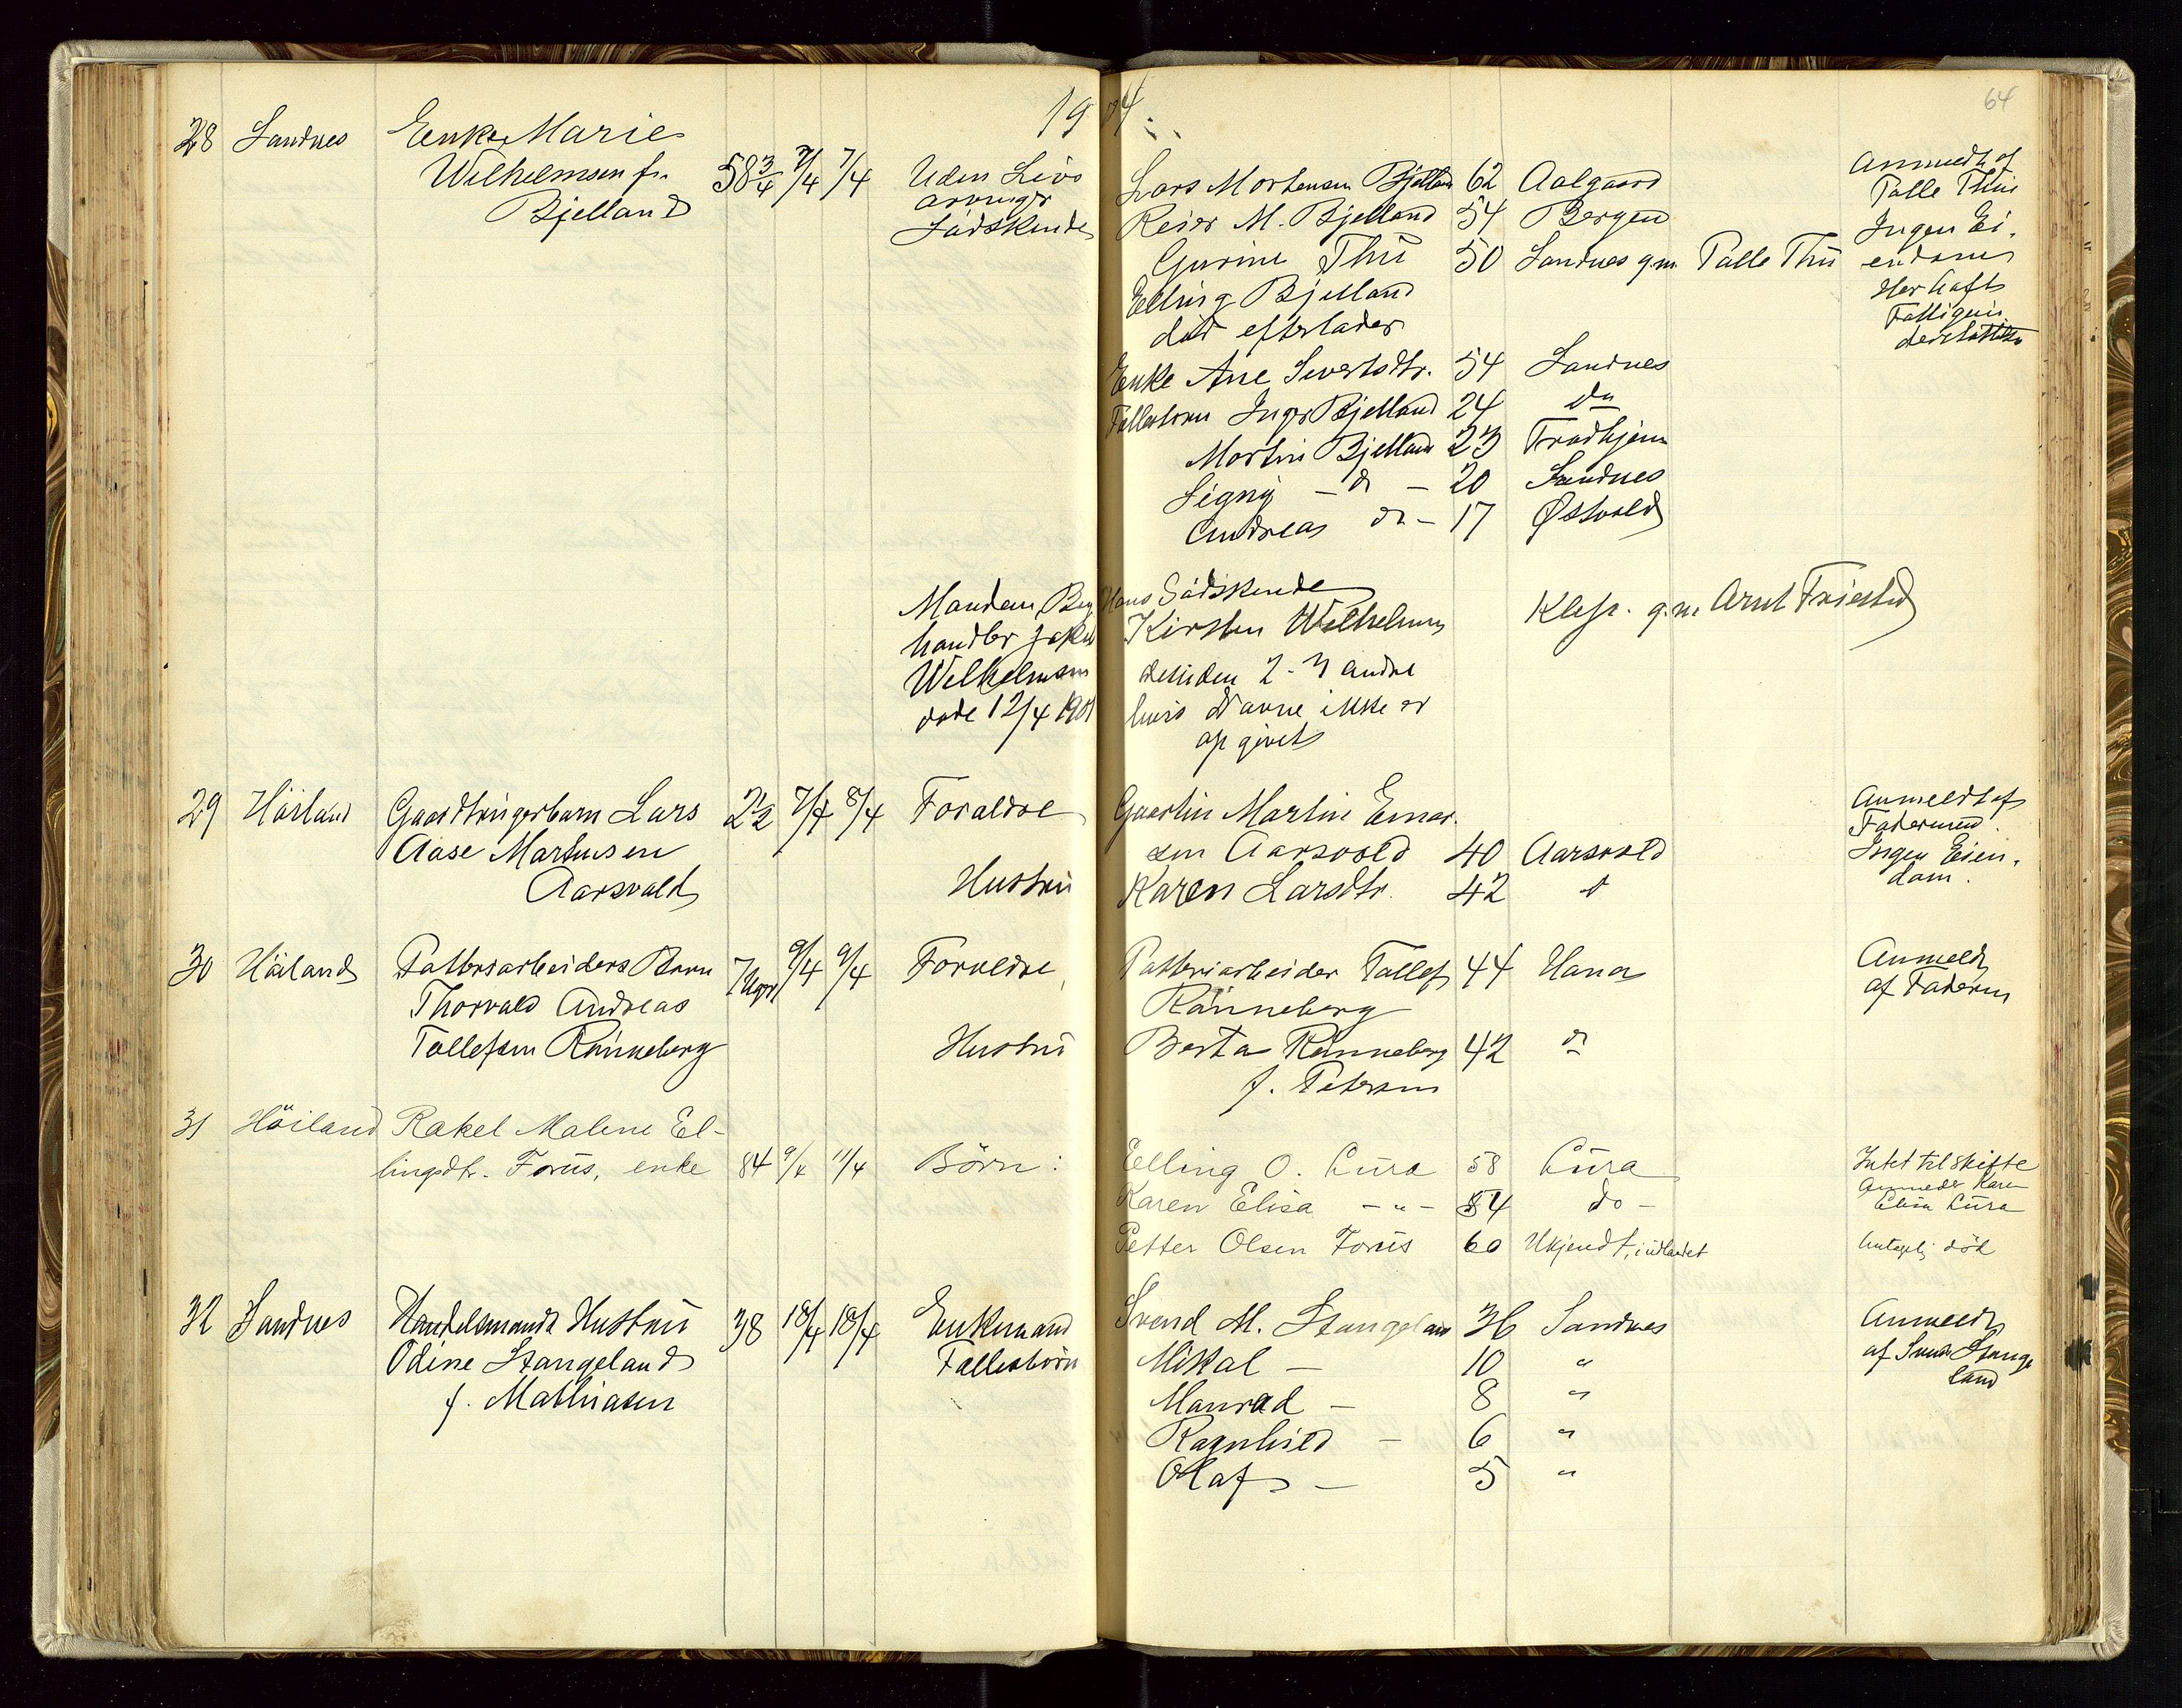 1904.
64
28 Sandnes Enke Marie
Wilhelmsen f.
Bjelland 58 3/4 7/4 7/4 Uden Livs
arvinger
Södskende
Lars Mortensen Bjelland 62 Aalgaard
Reier M. Bjelland 54 Bergen
Gurine Thu 50 Sandnes g.m. Palle Thu
Elling Bjelland
död efterlader
Enke Ane Sivertsdtr. 54 Sandnes
Fællesbörn Inger Bjelland 24 do
Martin Bjelland 23 Trodhjem
Signy - do - 20 Sandnes
Andreas do - 17 Østvold
Anmeldt af
Palle Thu
Ingen Ei-
endom
Har haft
Fattigun
derstöttelse
Manden
handler Jakob
Wilhelmsen
döde 12/4 1901
Hans Södskende
Kirsten Wilhelmsen Klep. g.m. Arnt Friestad
desuden 2-3 andre
hvis Navne ikke er
op givet
29 Höiland Gaardbrugerbarn Lars
Aase Martinsen
Aarsvold 2 1/2 7/4 8/4 Forældre
Hustru
Gaardbr. Martin Einar-
sen Aarsvold 40 Aarsvold
Karen Larsdtr. 42 d
Anmeldt af
Faderen
Ingen Eien-
dom.
30 Höiland Potteriarbeiders Barn
Thorvald Andreas
Tollefsen Rönneberg 7 Uger 9/4 9/4 Forældre
Hustru
Potteriarbeider Tollef 44 Hana
Rönneberg
Berta Rönneberg 42 do
f. Petersen
Anmeldt
af Faderen
31 Höiland Rakel Malene El-
lingsdtr. Forus, enke 84 9/4 11/4 Börn:
Elling O. Lura 58 Lura
Karen Elisa - " - 54 do -
Petter Olsen Forus 60 Ukjendt, i udlandet
Intet til skifte
Anmeder Karen
Elisa Lura
Antagelig död
32 Sandnes Handelsmands Hustru
Odine Stangeland
f. Mathiasen 38 18/4 18/4 Enkemand
Fællesbörn
Svend M. Stangeland 36 Sandnes
Mikal - 10 "
Manrad - 8 "
Ragnhild - 6 "
Olaf - 5 "
Anmeldt
af Svend Stange
land